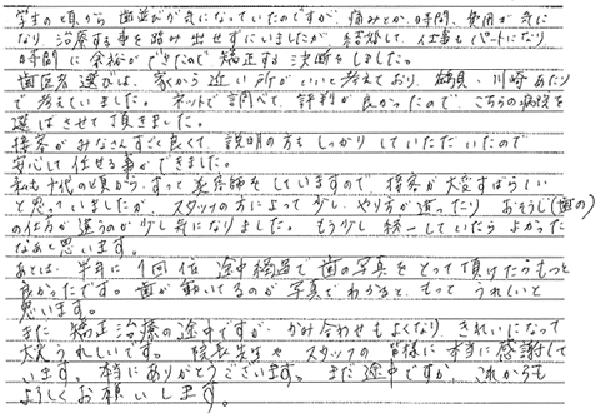 学生の頃から歯並びが気になっていたのですが、痛みとか、時間、費用が気に
なり治療する事を踏み出せずにいましたが、結婚して、仕事もパートになり
時間に余裕ができたので矯正する決断をしました。
歯医者選びは、家から近い所がいいと考えており、鶴見・川崎あたり
で考えていました。ネットで調べて、評判が良かったので、こちらの病院を
選ばさせて頂きました。
接客がみなさんすごく良くて、説明の方もしっかりしていただいたので
安心して任せる事ができました。
私も十代の頃からずっと美容師をしていますので、接客が大変すばらしい
と思っていましたが、スタッフの方によって少しやり方が違ったり おそうじ(歯の)
の仕方が違うのが少し気になりました。もう少し統一していたらよかった
なあと思います。
あとは、半年に1回位、途中経過で歯の写真をとって頂けたらもっと
良かったです。歯が動いてるのが写真でわかると、もっとうれしいと
思います。
まだ矯正治療の途中ですが、かみ合わせもよくなり、きれいになって
大変うれしいです。院長先生やスタッフの皆様に本当に感謝して
います。本当にありがとうございます。まだ途中ですが、これからも
よろしくお願いします。